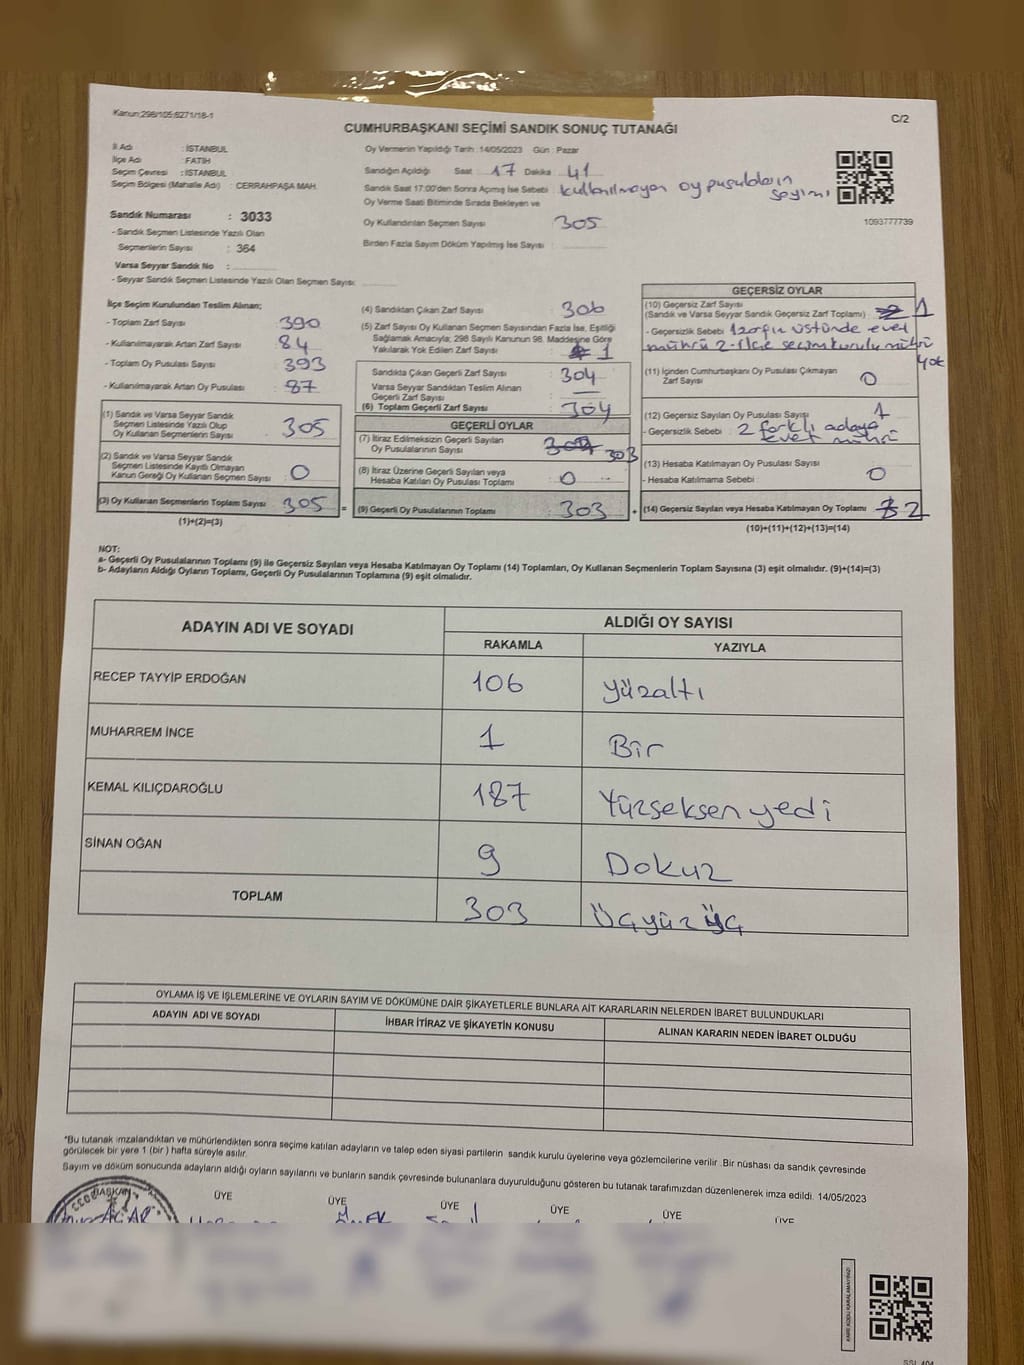 Kanun:298/105;6271/18-1
C/2
CUMHURBAŞKANI SEÇİMİ SANDIK SONUÇ TUTANAĞI
İl Adı : İSTANBUL
İlçe Adı : FATİH
Seçim Çevresi : İSTANBUL
Seçim Bölgesi (Mahalle Adı) : CERRAHPAŞA MAH.
Sandık Numarası : 3033
- Sandık Seçmen Listesinde Yazılı Olan
Seçmenlerin Sayısı : 364
Varsa Seyyar Sandık No :
- Seyyar Sandık Seçmen Listesinde Yazılı Olan Seçmen Sayısı :
Oy Vermenin Yapıldığı Tarih : 14/05/2023 Gün : Pazar
Sandığın Açıldığı Saat : 17 Dakika : 41
Sandık Saat 17.00'den Sonra Açımış İse Sebebi : kullanılmayan oy pusulaların sayımı
Oy Verme Saati Bitiminde Sırada Bekleyen ve
Oy Kullandırılan Seçmen Sayısı : 305
Birden Fazla Sayım Döküm Yapılmış İse Sayısı :
1093777739
İlçe Seçim Kurulundan Teslim Alınan;
- Toplam Zarf Sayısı : 390
- Kullanılmayarak Artan Zarf Sayısı : 84
- Toplam Oy Pusulası Sayısı : 393
- Kullanılmayarak Artan Oy Pusulası : 87
(1) Sandık ve Varsa Seyyar Sandık
Seçmen Listesinde Yazılı Olup
Oy Kullanan Seçmenlerin Sayısı : 305
(2) Sandık ve Varsa Seyyar Sandık
Seçmen Listesinde Kayıtlı Olmayan
Kanun Gereği Oy Kullanan Seçmen Sayısı : 0
(3) Oy Kullanan Seçmenlerin Toplam Sayısı : 305
(1)+(2)=(3)
=
(4) Sandıktan Çıkan Zarf Sayısı : 306
(5) Zarf Sayısı Oy Kullanan Seçmen Sayısından Fazla İse, Eşitliği
Sağlamak Amacıyla; 298 Sayılı Kanunun 98. Maddesine Göre
Yakılarak Yok Edilen Zarf Sayısı : 1
Sandıkta Çıkan Geçerli Zarf Sayısı : 304
Varsa Seyyar Sandıktan Teslim Alınan
Geçerli Zarf Sayısı :
(6) Toplam Geçerli Zarf Sayısı : 304
GEÇERLİ OYLAR
(7) İtiraz Edilmeksizin Geçerli Sayılan
Oy Pusulalarının Sayısı : 303
(8) İtiraz Üzerine Geçerli Sayılan veya
Hesaba Katılan Oy Pusulası Toplamı : 0
(9) Geçerli Oy Pusulalarının Toplamı : 303
+
GEÇERSİZ OYLAR
(10) Geçersiz Zarf Sayısı
(Sandık ve Varsa Seyyar Sandık Geçersiz Zarf Toplamı) : 1
- Geçersizlik Sebebi : 1 zarfın üstünde evet
mührü 2- ilçe seçim kurulu mührü
yok
(11) İçinden Cumhurbaşkanı Oy Pusulası Çıkmayan
Zarf Sayısı : 0
(12) Geçersiz Sayılan Oy Pusulası Sayısı : 1
- Geçersizlik Sebebi : 2 farklı adaya
evet mührü
(13) Hesaba Katılmayan Oy Pusulası Sayısı : 0
- Hesaba Katılmama Sebebi :
(14) Geçersiz Sayılan veya Hesaba Katılmayan Oy Toplamı : 2
(10)+(11)+(12)+(13)=(14)
NOT:
a- Geçerli Oy Pusulalarının Toplamı (9) ile Geçersiz Sayılan veya Hesaba Katılmayan Oy Toplamı (14) Toplamları, Oy Kullanan Seçmenlerin Toplam Sayısına (3) eşit olmalıdır. (9)+(14)=(3)
b- Adayların Aldığı Oyların Toplamı, Geçerli Oy Pusulalarının Toplamına (9) eşit olmalıdır.
ADAYIN ADI VE SOYADI
ALDIĞI OY SAYISI
RAKAMLA YAZIYLA
RECEP TAYYİP ERDOĞAN 106 yüzaltı
MUHARREM İNCE 1 Bir
KEMAL KILIÇDAROĞLU 187 Yüzseksen yedi
SİNAN OĞAN 9 Dokuz
TOPLAM 303 Üçyüz üç
OYLAMA İŞ VE İŞLEMLERİNE VE OYLARIN SAYIM VE DÖKÜMÜNE DAİR ŞİKAYETLERLE BUNLARA AİT KARARLARIN NELERDEN İBARET BULUNDUKLARI
ADAYIN ADI VE SOYADI İHBAR İTİRAZ VE ŞİKAYETİN KONUSU ALINAN KARARIN NEDEN İBARET OLDUĞU
*Bu tutanak imzalandıktan ve mühürlendikten sonra seçime katılan adayların ve talep eden siyasi partilerin sandık kurulu üyelerine veya gözlemcilerine verilir .Bir nüshası da sandık çevresinde
görülecek bir yere 1 (bir ) hafta süreyle asılır.
Sayım ve döküm sonucunda adayların aldığı oyların sayılarını ve bunların sandık çevresinde bulunanlara duyurulduğunu gösteren bu tutanak tarafımızdan düzenlenerek imza edildi. 14/05/2023
BAŞKAN ÜYE ÜYE ÜYE ÜYE ÜYE ÜYE